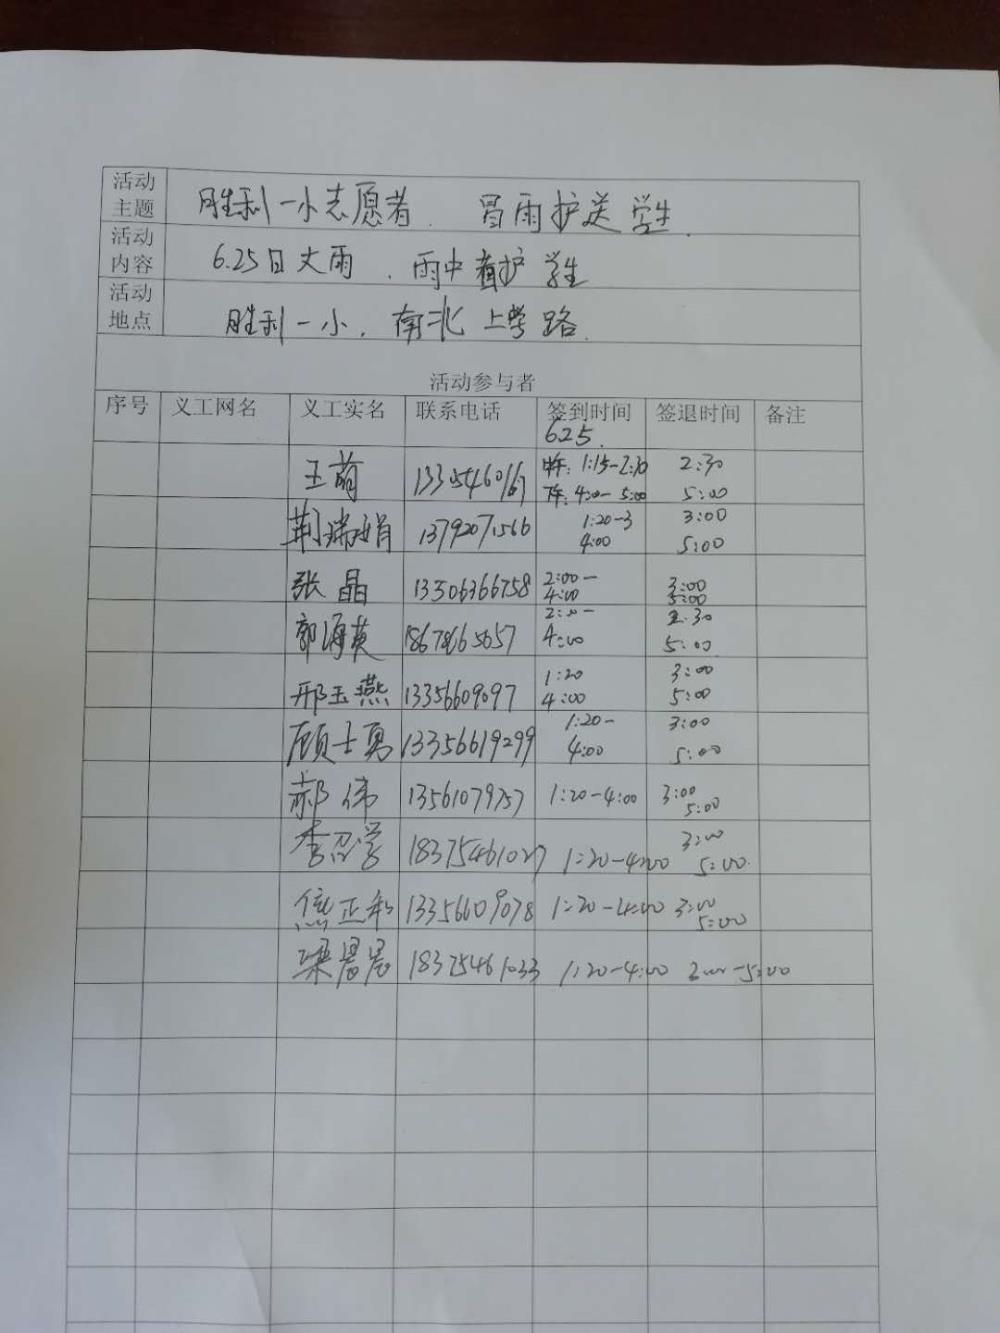 活动主题 胜利一小志愿者. 冒雨护送学生.
活动内容 6.25日大雨. 雨中看护学生
活动地点 胜利一小. 南北上学路.
活动参与者
序号 义工网名 义工实名 联系电话 签到时间 签退时间 备注
625.
王萌 1:15-2:30 2:30
4:00-5:00 5:00
荆瑞娟 13792071566 1:20-3 3:00
4:00 5:00
张晶 13506366758 2:00- 3:00
4:00 5:00
郭海英 2:30
4:00 5:00
邢玉燕 13356609097 1:20 3:00
4:00 5:00
顾士勇 13356619299 1:20- 3:00
4:00 5:00
郝伟 13561079757 1:20-4:00 3:00
5:00
李召学 18375461027 1:20-4:00 3:00
5:00
焦正和 13356609078 1:20-4:00 3:00
5:00
梁晨晨 18375461033 1:20-4:00 -5:00